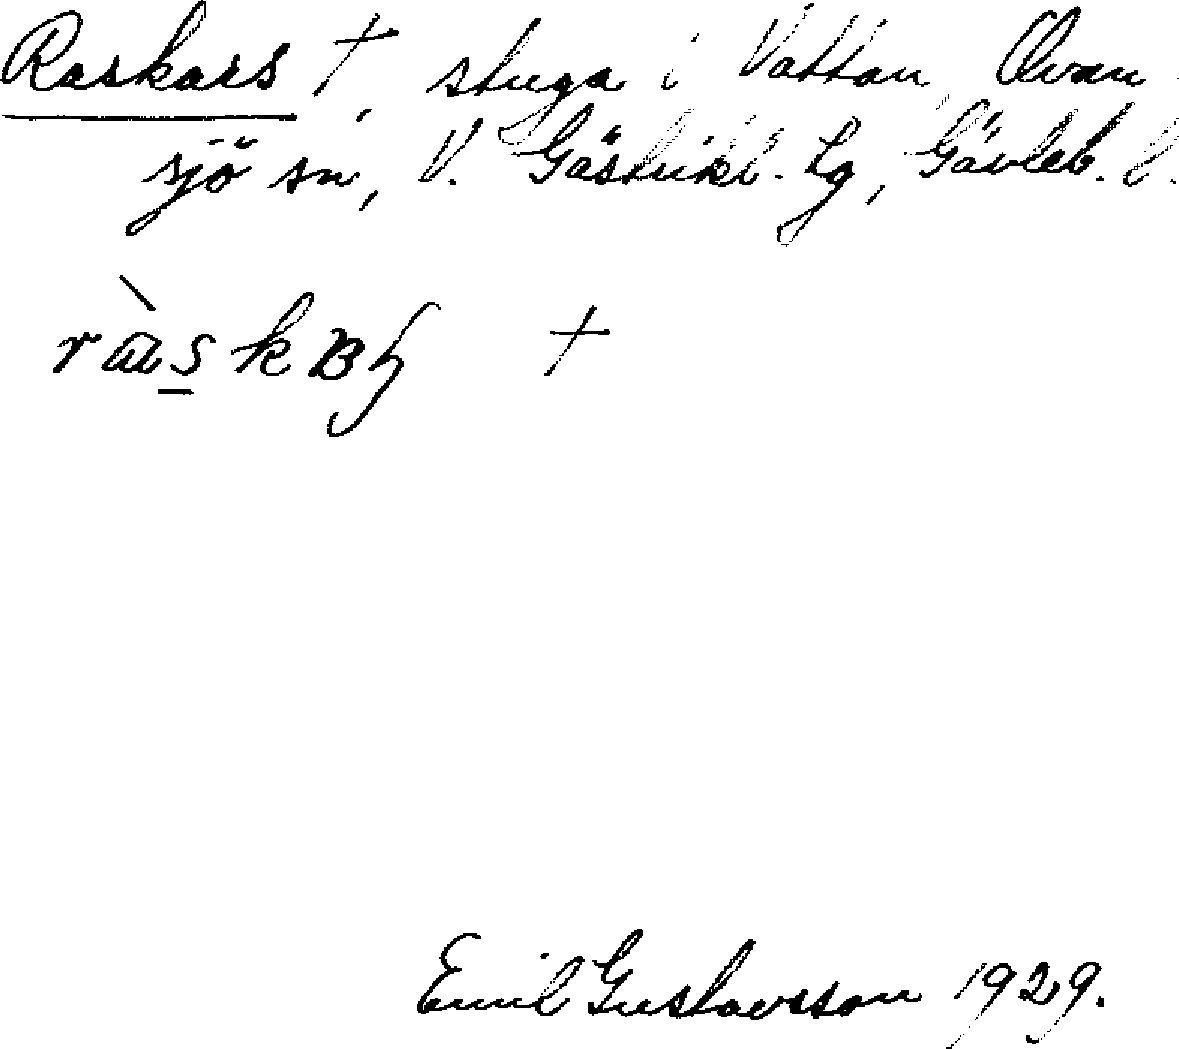 Raskars †, stuga i Vattan, Ovan-
sjö sn, V. Gästrikl. tg, Gävleb. l.
†
Emil Gustavsson 1929.